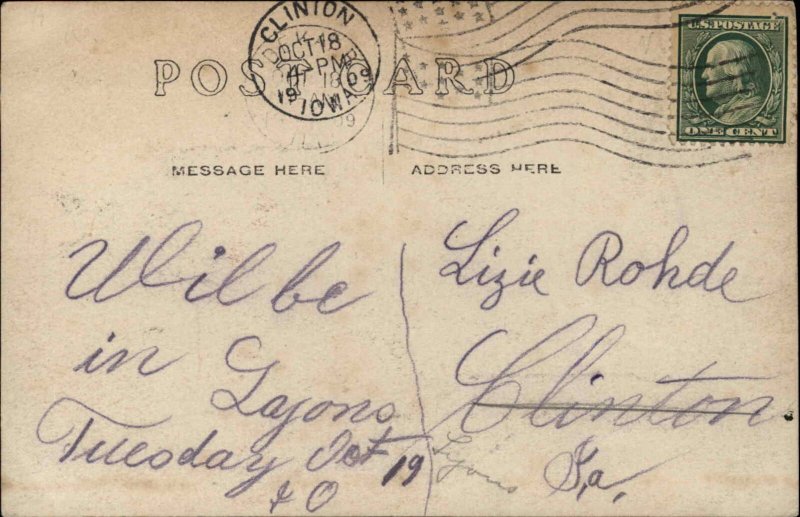 CLINION
OCT 18
PM
1909
IOWA
U.S. POSTAGE
ONE CENT
POST CARD
MESSAGE HERE
ADDRESS HERE
Wil be
in Lyons
Tuesday Oct 19
Lizie Rohde
Clinton.
Lyons
Ia.